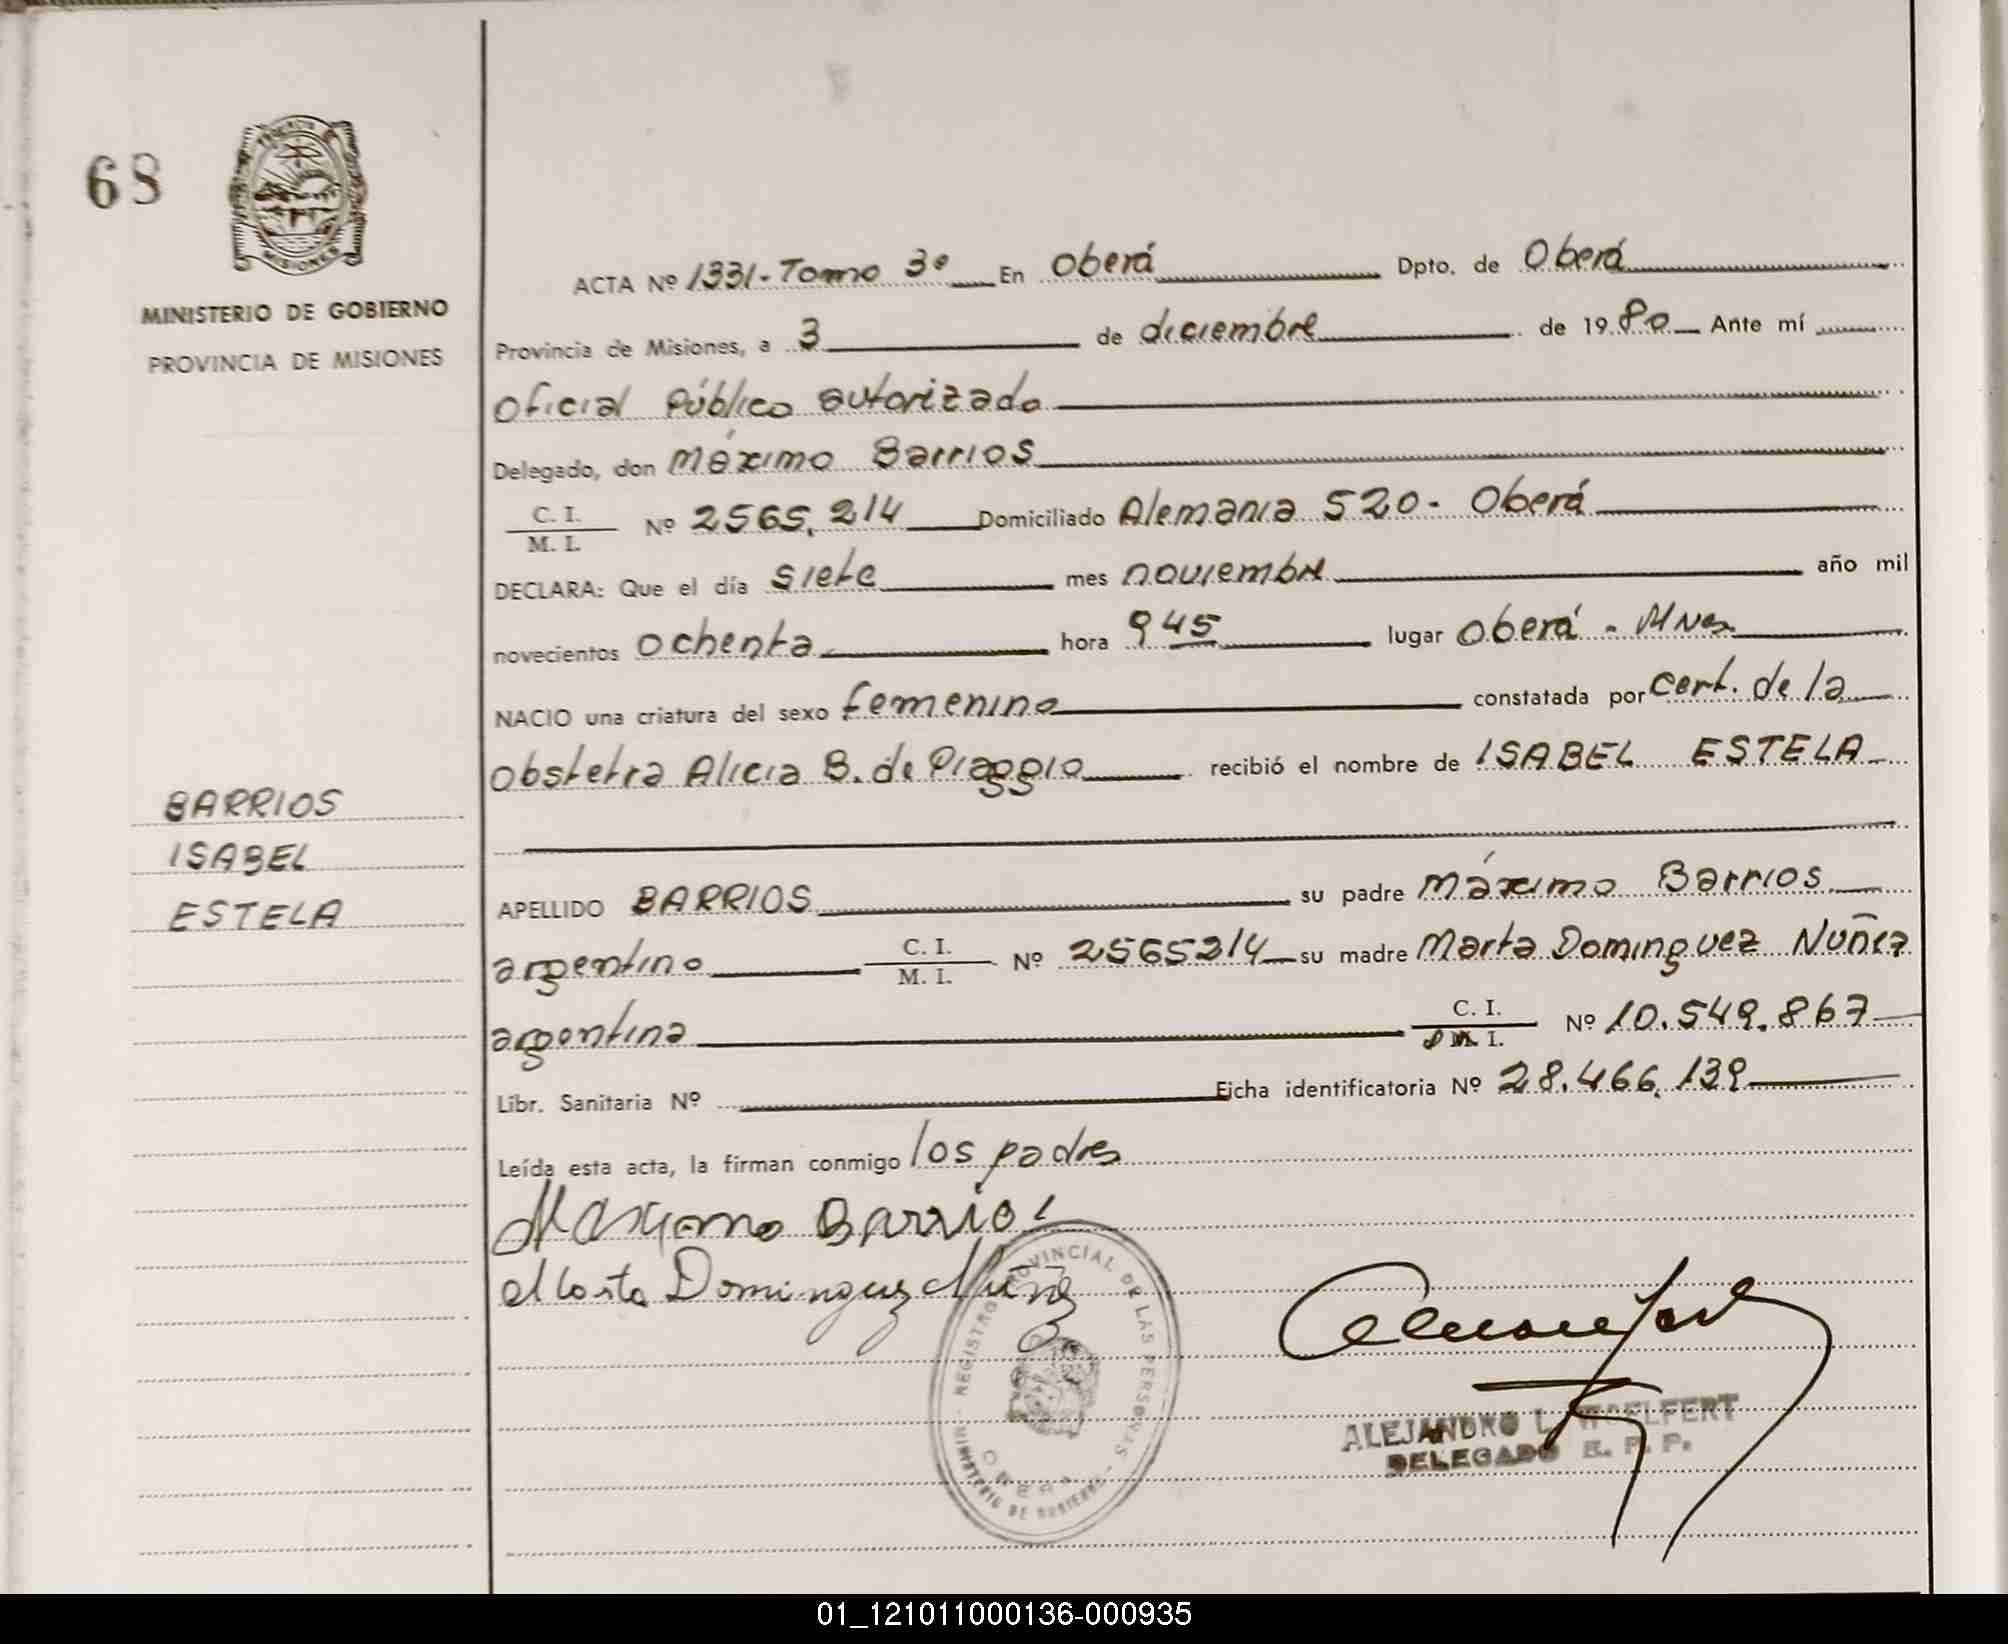 68
PROVINCIA
MISIONES
MINISTERIO DE GOBIERNO
PROVINCIA DE MISIONES
BARRIOS
ISABEL
ESTELA
ACTA Nº 1331-Tomo 3º En Oberá Dpto. de Oberá
Provincia de Misiones, a 3 de diciembre de 1980 Ante mí
Oficial Público autorizado
Delegado, don Máximo Barrios
C. I.
M. I. Nº 2565.214 Domiciliado Alemania 520- Oberá
DECLARA: Que el día siete mes noviembre año mil
novecientos ochenta hora 9 45 lugar Oberá - Mnes
NACIO una criatura del sexo femenino constatada por cert. de la
obstetra Alicia B. de Piaggio recibió el nombre de ISABEL ESTELA
APELLIDO BARRIOS su padre Máximo Barrios
argentino C. I.
M. I. Nº 2565214 su madre Marta Dominguez Nuñez
argentina C. I.
M. I. Nº 10.549.867
Libr. Sanitaria Nº Ficha identificatoria Nº 28.466.139
Leída esta acta, la firman conmigo los padres
Maximo Barrios
Marta Dominguez Nuñez
REGISTRO PROVINCIAL DE LAS PERSONAS - MINISTERIO DE GOBIERNO -
OBERA
ALEJANDRO L.
DELEGADO R. P. P.
01_121011000136-000935